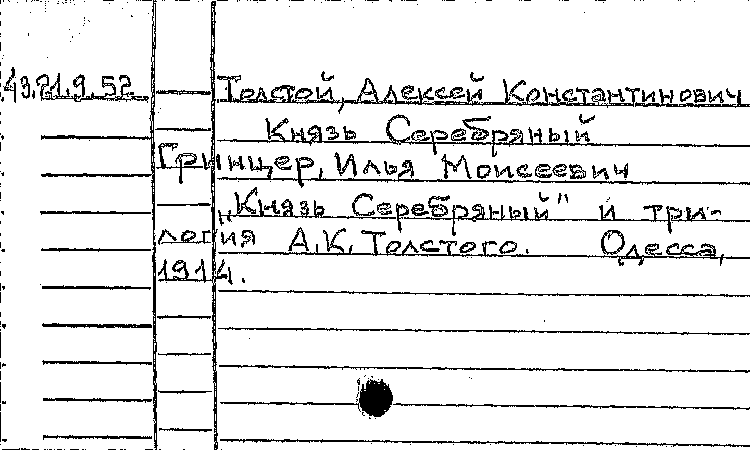 49.21.9.52 Толстой, Алексей Константинович
Князь Серебряный
Гринцер, Илья Моисеевич
„Князь Серебряный" и три-
логия А.К. Толстого. Одесса,
1914.